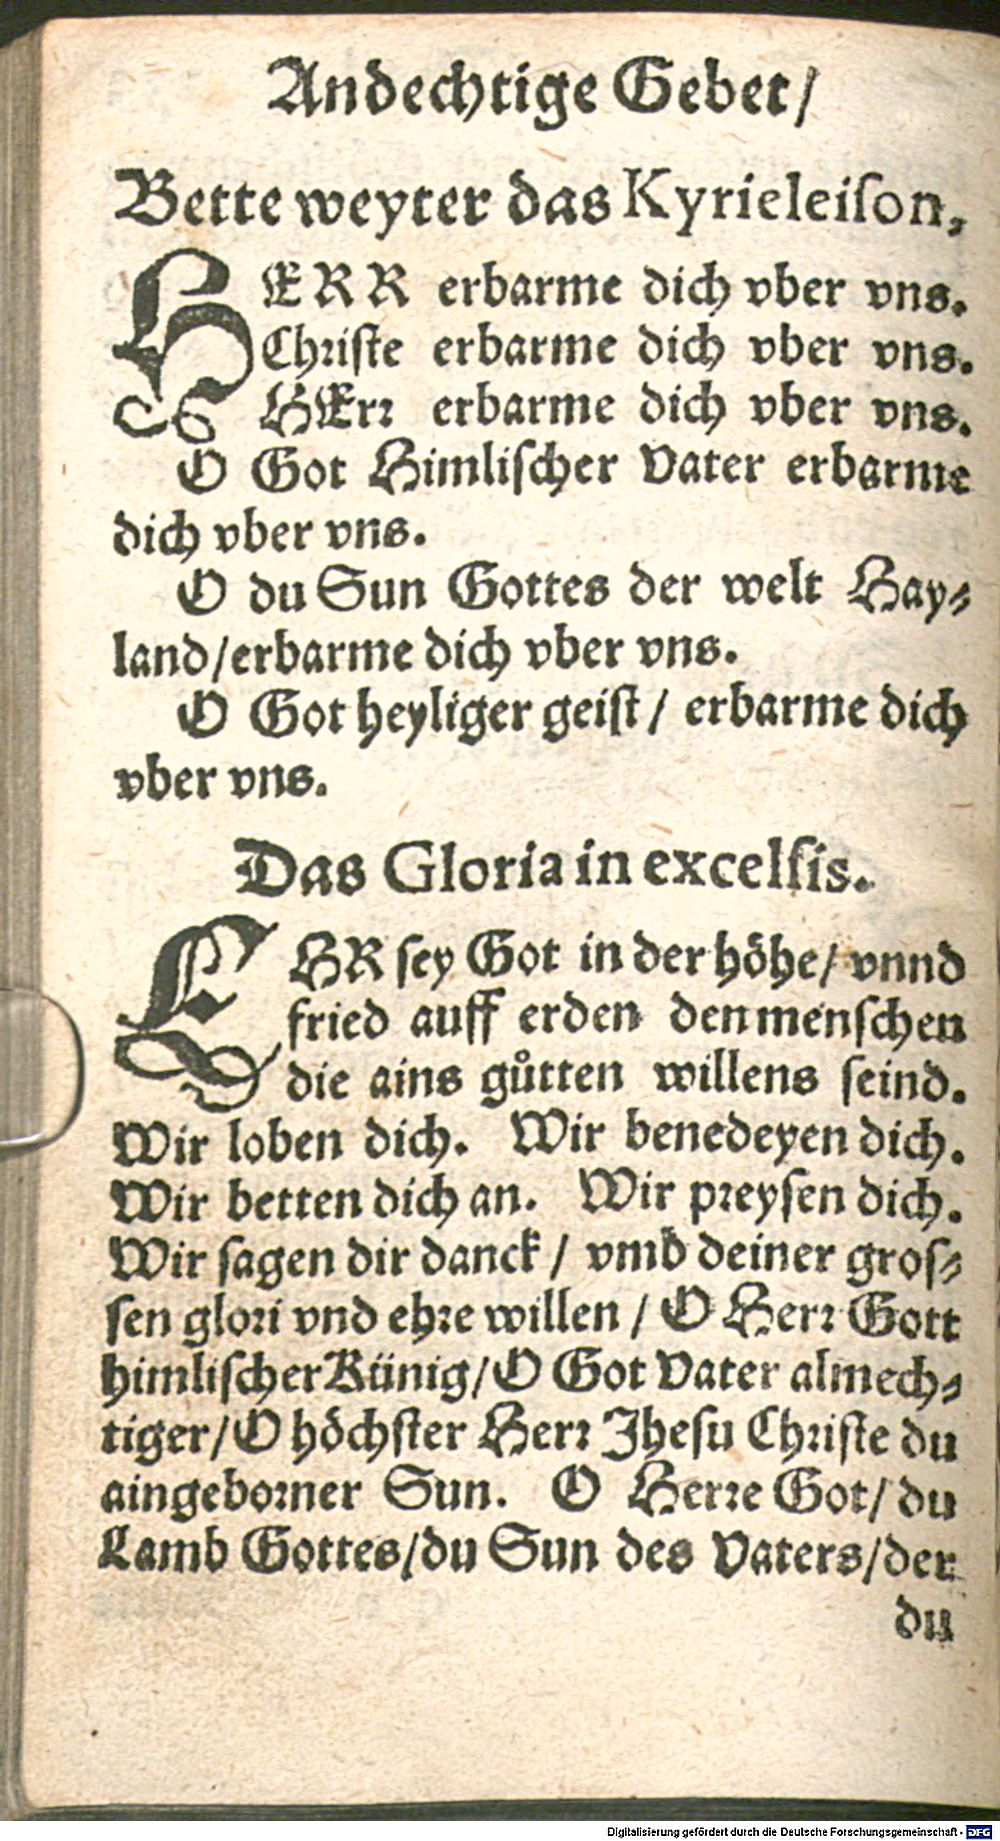 Andechtige Gebet/
Bette weyter das Kyrieleiſon,
HERR erbarme dich vber vns.
Chriſte erbarme dich vber vns.
HErr erbarme dich vber vns.
O Got Himliſcher Vater erbarme
dich vber vns.
O du Sun Gottes der welt Hay⸗
land/erbarme dich vber vns.
O Got heyliger geiſt / erbarme dich
vber vns.
Das Gloria in excelſis.
EHR ſey Got in der höhe/ vnnd
fried auff erden den menſchen
die ains gůtten willens ſeind.
Wir loben dich. Wir benedeyen dich.
Wir betten dich an. Wir preyſen dich.
Wir ſagen dir danck / vmb deiner groſ⸗
ſen glori vnd ehre willen / O Herr Gott
himliſcher Künig/O Got Vater almech⸗
tiger/O höchſter Herr Jheſu Chriſte du
aingeborner Sun. O Herre Got/ du
Lamb Gottes/du Sun des Vaters/der
du
Digitalisierung gefördert durch die Deutsche Forschungsgemeinschaft - DFG